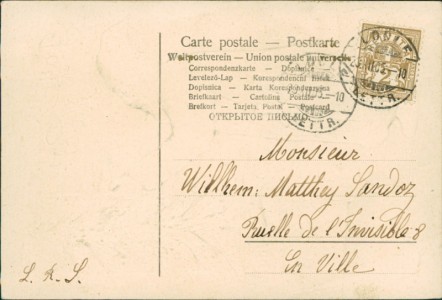 Carte postale — Postkarte
Weltpostverein — Union postale universelle
Correspondenzkarte — Dopisnice
Levelező-Lap — Korespondenční lístek
Dopisnica — Karta Korespondencyjna
Briefkaart — Cartolina Postale
Brefkort — Tarjeta Postal — Postcard
ОТКРЫТОЕ ПИСЬМО
LOCLE
LETTR.
2
Monsieur
Wilhem: Matthey Sandoz
Ruelle de l'Invisible 8
En Ville
L. A. S.